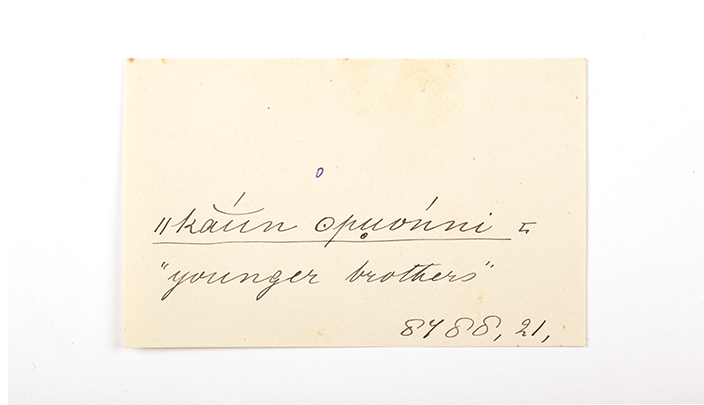 ǁkắun ʘpu̥ónni =
"younger brothers"
8488, 21,